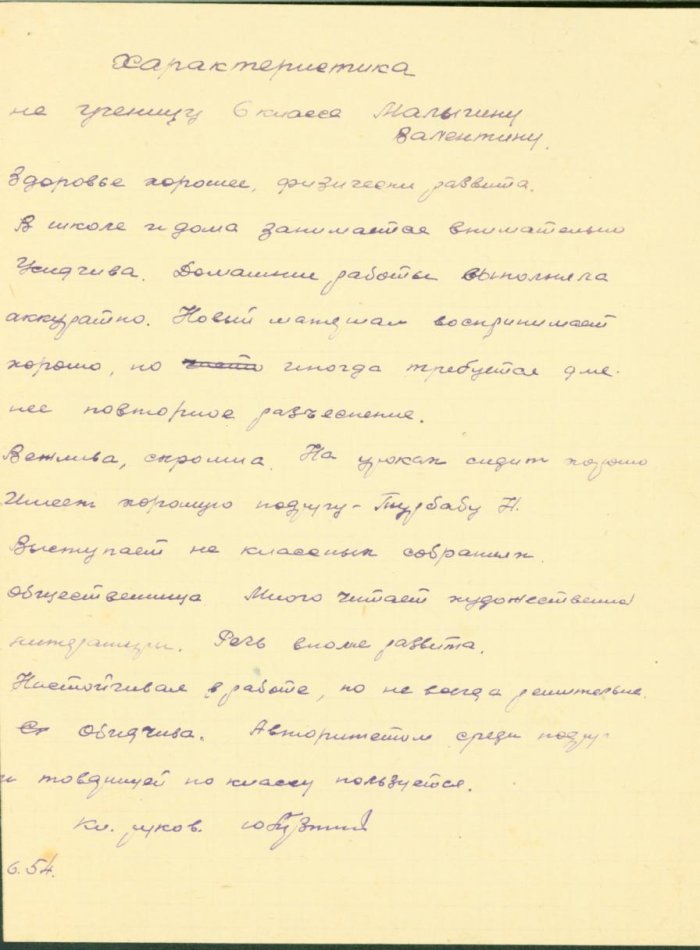 Характеристика
на ученицу 6 класса Малыгину
Валентину.
Здоровье хорошее, физически развита.
В школе и дома занимается внимательно
Усидчива. Домашние работы выполняла
аккуратно. Новый материал воспринимает
хорошо, но иногда требуется для
нее повторное разъеснение.
Вежлива, скромна. На уроках сидит хорошо
Имеет хорошую подругу - Турбабу Н.
Выступает на классных собраниях.
Общественница Много читает художественной
литературы. Речь вполне развита.
Настойчивая в работе, но не всегда решительна.
Обидчива. Авторитетом среди подруг
и товарищей по классу пользуется.
Кл. руков.
6.54.